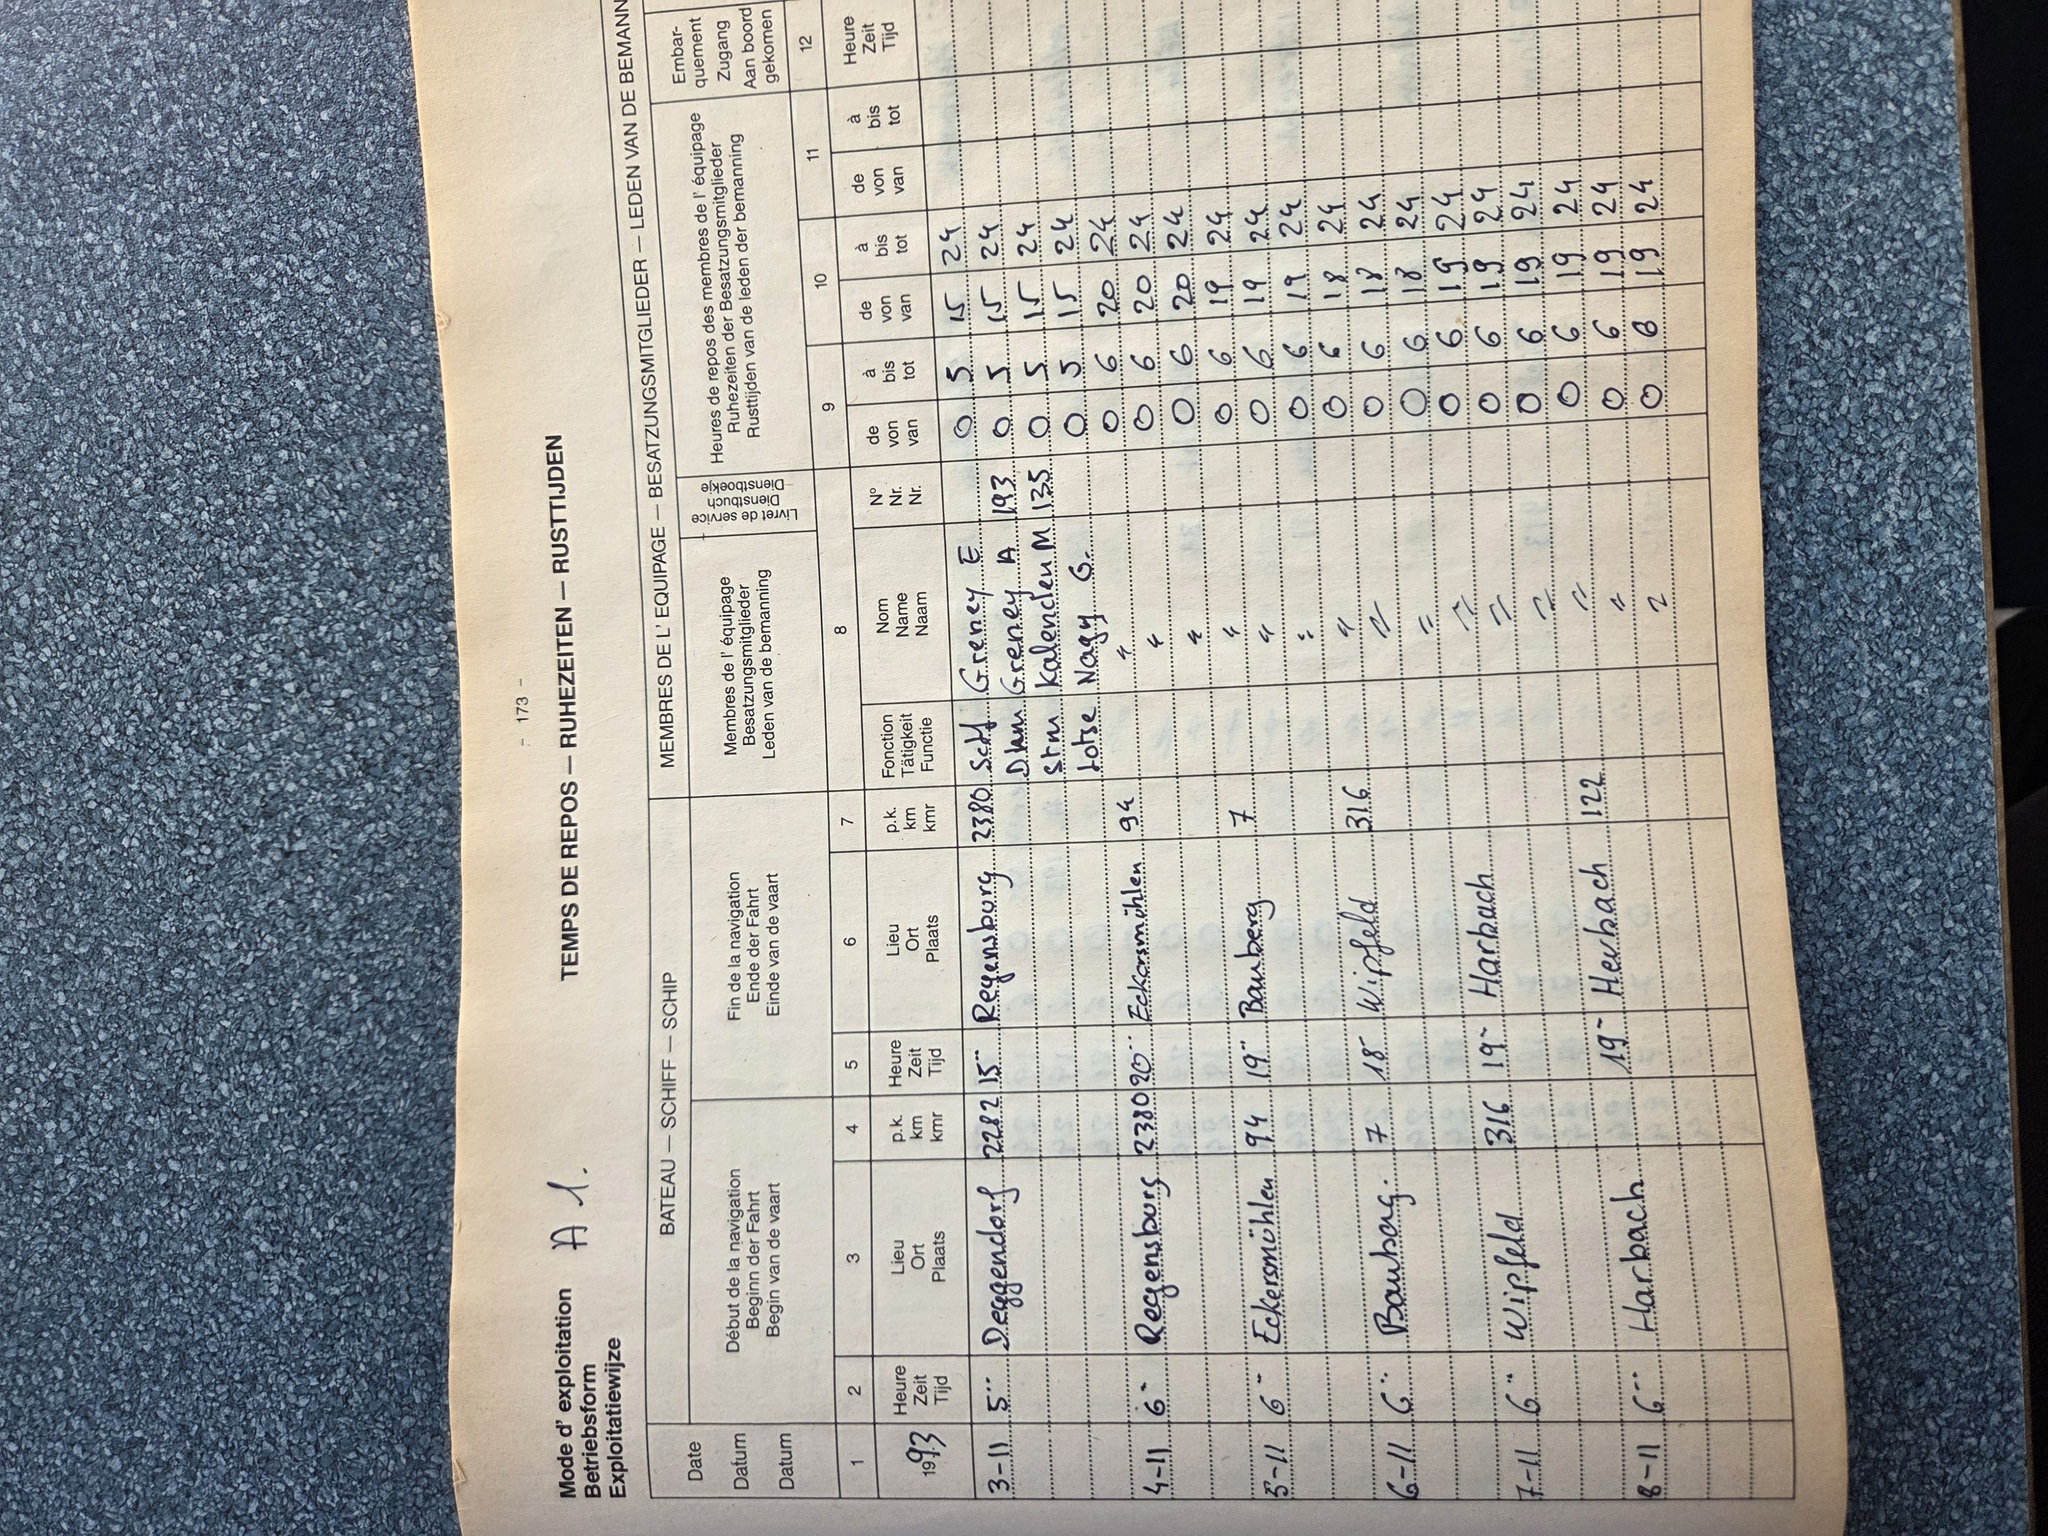 - 173 -
Mode d' exploitation
Betriebsform A 1.
Exploitatiewijze
TEMPS DE REPOS — RUHEZEITEN — RUSTTIJDEN
BATEAU — SCHIFF — SCHIP
MEMBRES DE L' EQUIPAGE — BESATZUNGSMITGLIEDER — LEDEN VAN DE BEMANN
Date
Datum
Datum
Début de la navigation
Beginn der Fahrt
Begin van de vaart
Fin de la navigation
Ende der Fahrt
Einde van de vaart
Membres de l' équipage
Besatzungsmitglieder
Leden van de bemanning
Livret de service
Dienstbuch
Dienstboekje
Heures de repos des membres de l' équipage
Ruhezeiten der Besatzungsmitglieder
Rusttijden van de leden der bemanning
Embar-
quement
Zugang
Aan boord
gekomen
1 2 3 4 5 6 7 8 9 10 11 12
1993
Heure Lieu p.k. Heure Lieu p.k. Fonction Nom N° de à de à de à Heure
Zeit Ort km Zeit Ort km Tätigkeit Name Nr. von bis von bis von bis Zeit
Tijd Plaats kmr Tijd Plaats kmr Functie Naam Nr. van tot van tot van tot Tijd
3-11 5·· Deggendorf 2282 15·· Regensburg 2380 Schf Greney E 0 5 15 24
Dkm Greney A 193 0 5 15 24
Stm Kalenden M 135 0 5 15 24
Lotse Nagy G. 0 5 15 24
4-11 6- Regensburg 2380 20·· Eckersmühlen 94 " 0 6 20 24
" 0 6 20 24
" 0 6 20 24
5-11 6- Eckersmühlen 94 19·· Bamberg 7 " 0 6 19 24
" 0 6 19 24
" 0 6 19 24
6-11 6·· Bamberg. 7 18- Wipfeld 316 " 0 6 18 24
" 0 6 18 24
" 0 6 18 24
7-11 6·· Wipfeld 316 19- Harbach " 0 6 19 24
" 0 6 19 24
" 0 6 19 24
8-11 6-- Harbach 19- Heubach 122 " 0 6 19 24
" 0 6 19 24
" 0 6 19 24